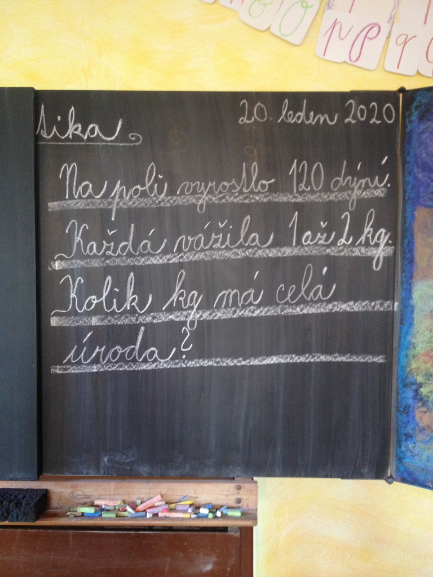 20. leden 2020
Na poli vyrostlo 120 dýní.
Každá vážila 1 až 2 kg.
Kolik kg má celá
úroda?